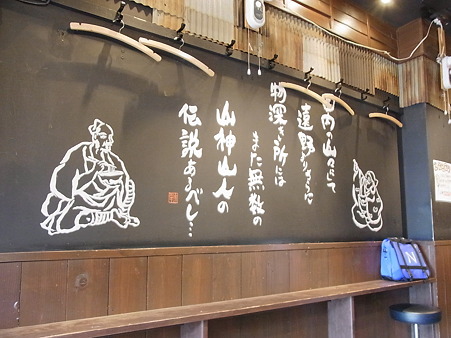 国内の山村にして
遠野よりさらに
物深き所には
また無数の
山神山人の
伝説あるべし…
N